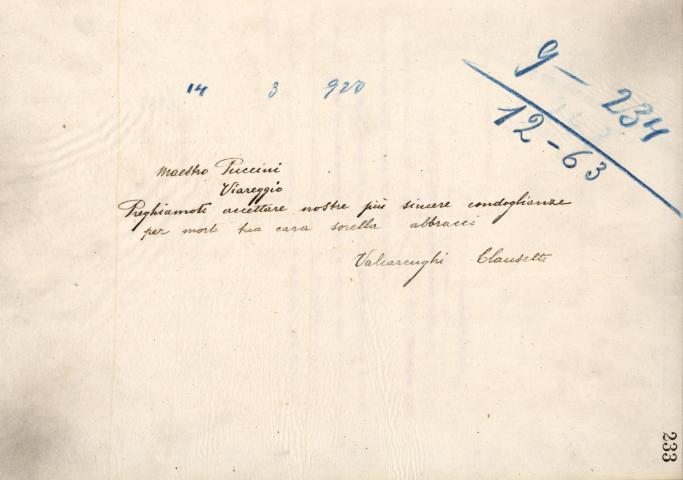 9 - 234
12 - 63
14 3 920
Maestro Puccini
Viareggio
Preghiamoti accettare nostre più sincere condoglianze
per morte tua cara sorella abbracci
Valcarenghi Clausetti
233